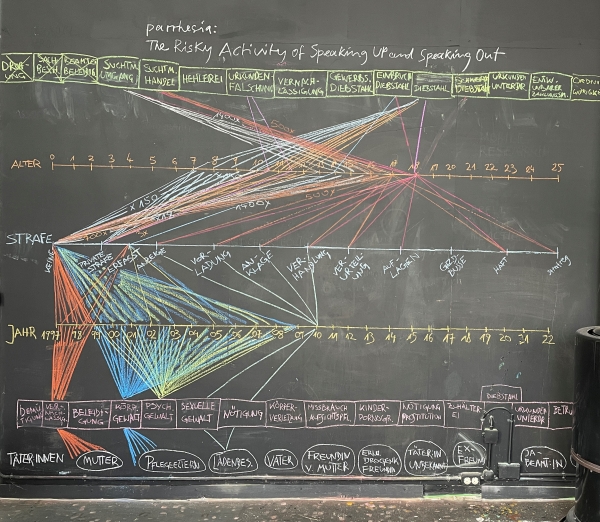 parrhesia:
The Risky Activity of Speaking Up and Speaking Out
DROHUNG SACH BESCH. BEAMTEN BELEIDIG SUCHTM. UMGANG SUCHTM. HANDEL HEHLEREI URKUNDEN FÄLSCHUNG VERNACHLÄSSIGUNG GEWERBS. DIEBSTAHL EINBRUCH DIEBSTAHL DIEBSTAHL SCHWERER DIEBSTAHL URKUNDEN UNTERDR.
1400x 500x
ALTER 0 1 2 3 4 5 6 7 8 9 10 17 18 19 20 21 22 23 24 25
x 150 1400x 500x
STRAFE
KEINE PRIVATE STRAFE VORLADUNG ANKLAGE VERHANDLUNG VERURTEILUNG AUFLAGEN GELDBUSSE HAFT
JAHR 1997 98 99 00 01 02 03 04 05 06 07 08 09 10 11 12 13 14 15 16 17 18 19 20 21 22
DIEBSTAHL
DEMÜTIGUNG VERNACHLÄSSIG BELEIDIGUNG KÖRP. GEWALT PSYCH GEWALT SEXUELLE GEWALT NÖTIGUNG KÖRPERVERLETZUNG MISSBRAUCH KINDERPORNOGR. NÖTIGUNG PROSTITUTION ZUHÄLTEREI URKUNDEN UNTERDR BETRU
TÄTER:INNEN MUTTER PFLEGEELTERN LADENBES. VATER FREUNDIN V. MUTTER EHEM. DROGENK FREUNDIN TÄTER:IN UNBEKANNT EX-FREUND BEAMT:IN